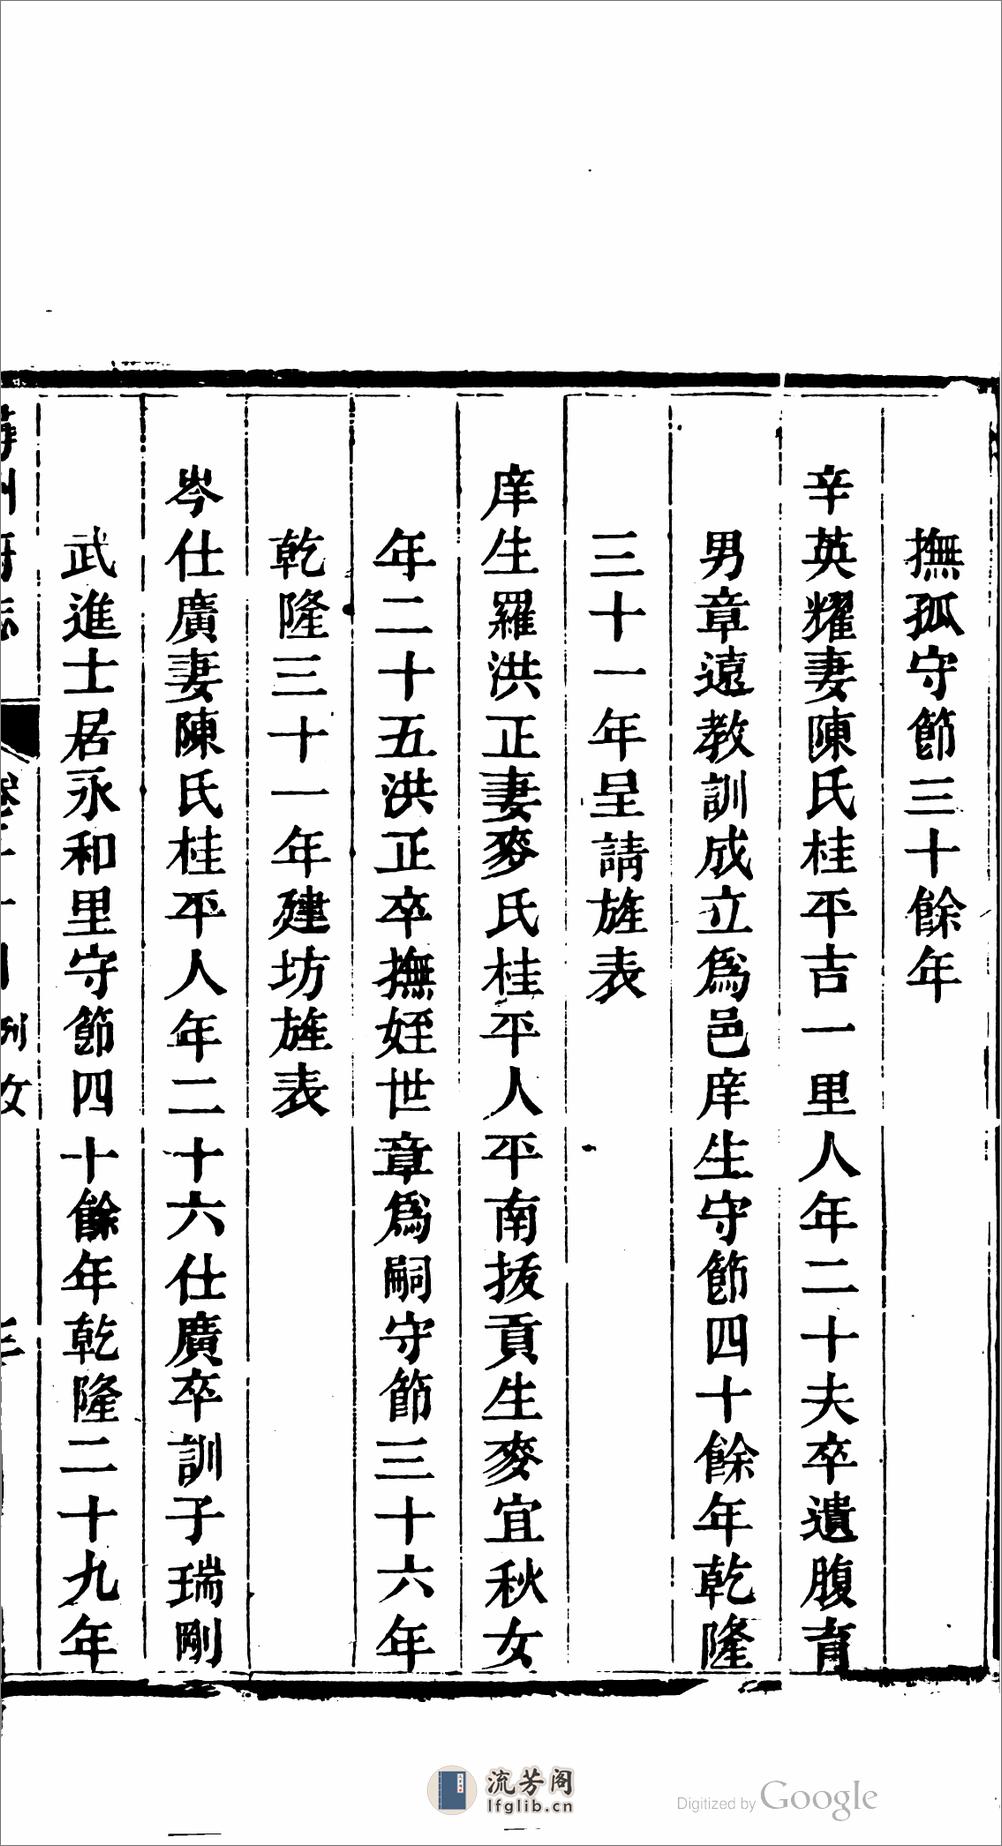 撫孤守節三十餘年
辛英耀妻陳氏桂平吉一里人年二十夫卒遺腹育
男章遠教訓成立爲邑庠生守節四十餘年乾隆
三十一年呈請旌表
庠生羅洪正妻麥氏桂平人平南拔貢生麥宜秋女
年二十五洪正卒撫姪世章爲嗣守節三十六年
乾隆三十一年建坊旌表
岑仕廣妻陳氏桂平人年二十六仕廣卒訓子瑞剛
武進士居永和里守節四十餘年乾隆二十九年
州府志 卷 列女
流芳阁
lfglib.cn
Digitized by Google